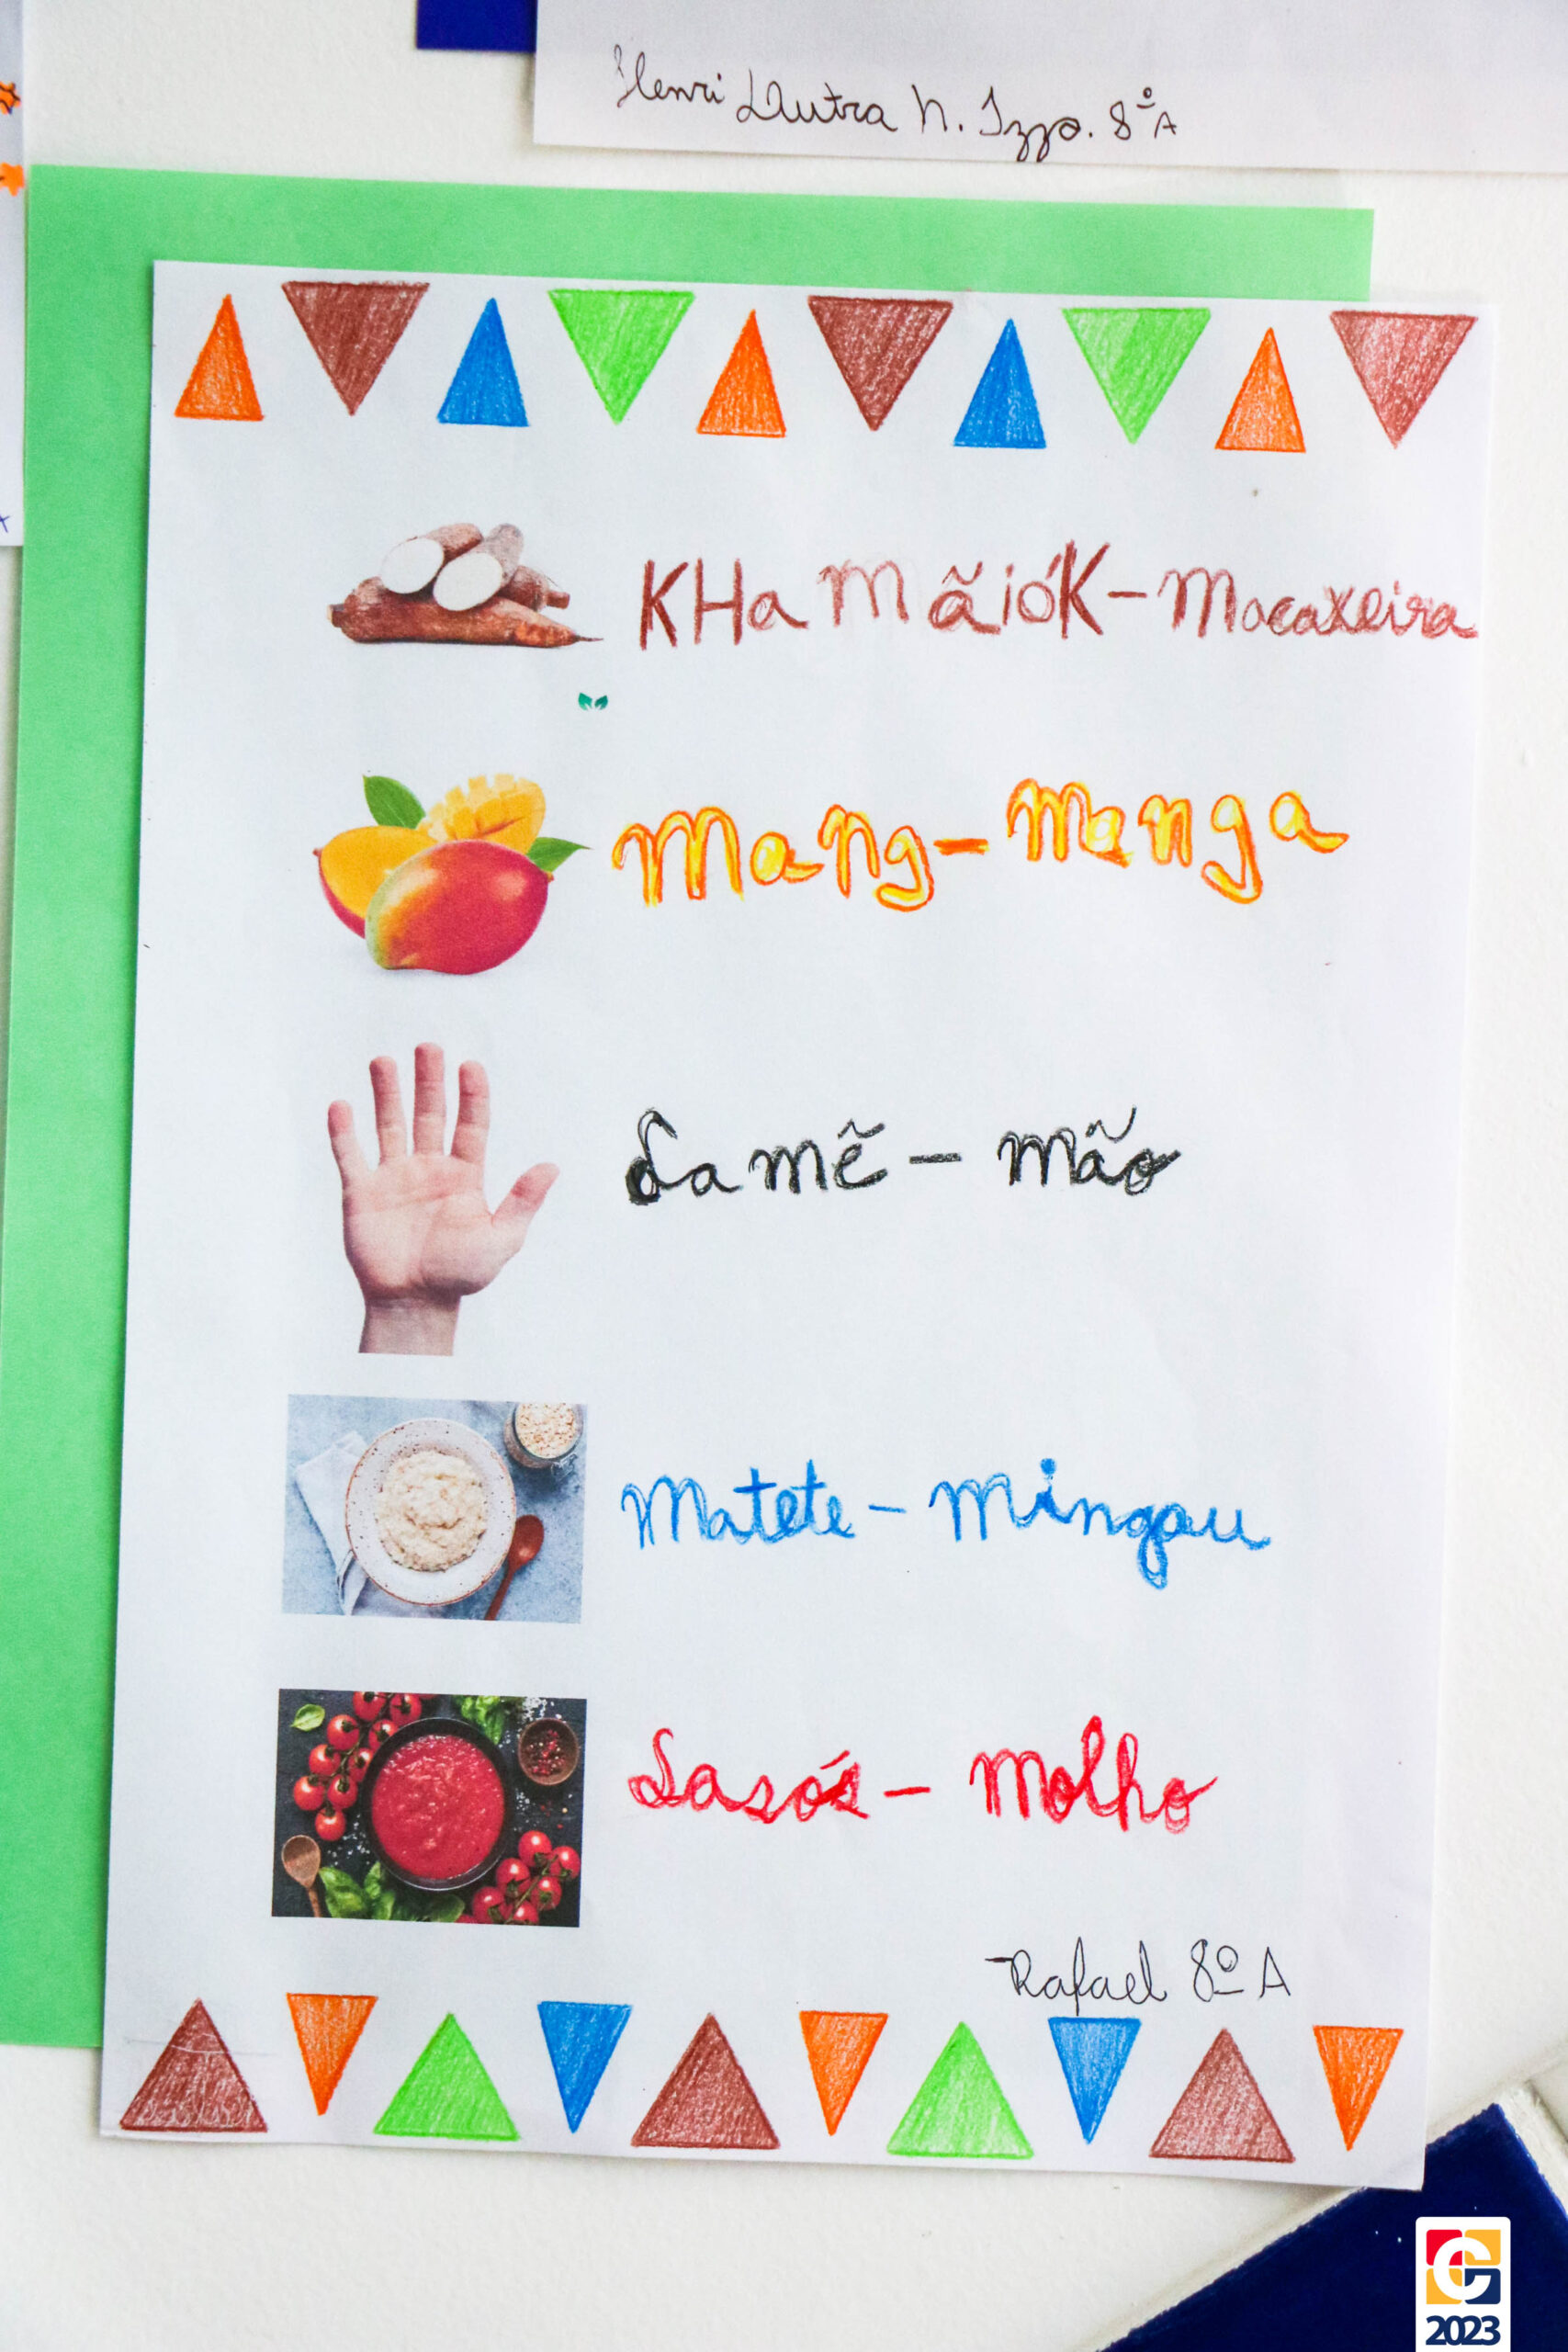 Henri Dutra N. Izzo. 8ºA
KHamãióK - Macaxeira
Mang - Manga
Lamẽ - Mão
Matete - Mingau
Sasós - Molho
- Rafael 8º A
2023